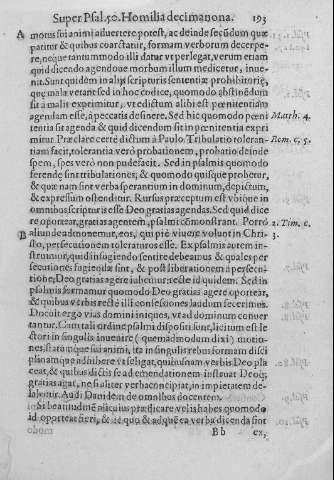 Super Psal. 50. Homilia decimanona. 193
A motus sui animi aduertere potest, ac deinde secũdum quæ
patitur & quibus coarctatur, formam verborum decerpe-
re, neque tantummodo illi datur vt perlegat, verum etiam
quid dicendo agendoue morbum illum medicetur, inue-
nit. Sunt quidem in alijs scripturis sententiæ prohibitoriæ,
quę mala vetant sed in hoc codice, quomodo abstinẽdum
sit à malis exprimitur, vt edictum alibi est pœnitentiam
agendam esse, à peccatis desinere. Sed hic quomodo pœni Math. 4.
tentia sit agenda & quid dicendum sit in pœnitentia expri
mitur Præclare certè dictum à Paulo. Tribulatio toleran- Rom. c, 5.
tiam facit, tolerantia verò probationem, probatio deinde
spem, spes verò non pudefacit. Sed in psalmis quomodo
ferendę sint tribulationes, & quomodo quisque probetur,
& quæ nam sint verba sperantium in dominum, depictum,
& expressum ostenditur. Rursus præceptum est vbique in
omnibus scripturis esse Deo gratias agendas. Sed quid dice
re oporteat, gratias agentem, psalmi cõmonstrant. Porró 2. Tim. c.
B aliunde admonemur, eos, qui piè viuere volunt in Chri- 3.
sto, persecutionem toleraturos esse. Ex psalmis autem in-
struimur, quid in fugiendo sentire debeamus & quales per
secutiones fugiẽdæ sint, & post liberationem à persecu-
tione, Deo gratias agere iubemur: recte id quidem. Sed in
psalmis formamur quomodo Deo gratias agere oporteat,
& quibus verbis recte illi confessiones laudum fecerimus.
Docuit ergo vias domini iniques, vt ad dominum conuer
tantur. Cum tali ordine psalmi dispositi sunt, licitum est le
ctori in singulis inuenire (quemadmodum dixi) motio-
nes, statumque sui animi, ita in singulis rebus formam disci
plinamque adhibere vt seligat, quiusnam verbis Deo pla
ceat, & quibus dictis se ad emendationem instruat Deoq;
gratias agat, ne si aliter verba concipiat, in impietatem de-
labatur. Audi Dauidem de omnibus docentem.
Si beatitudinē alicuius prædicare velis habes quomodo
id oporteat fieri, & in quo & ad quę ea verba dicenda sint
Bb ex,